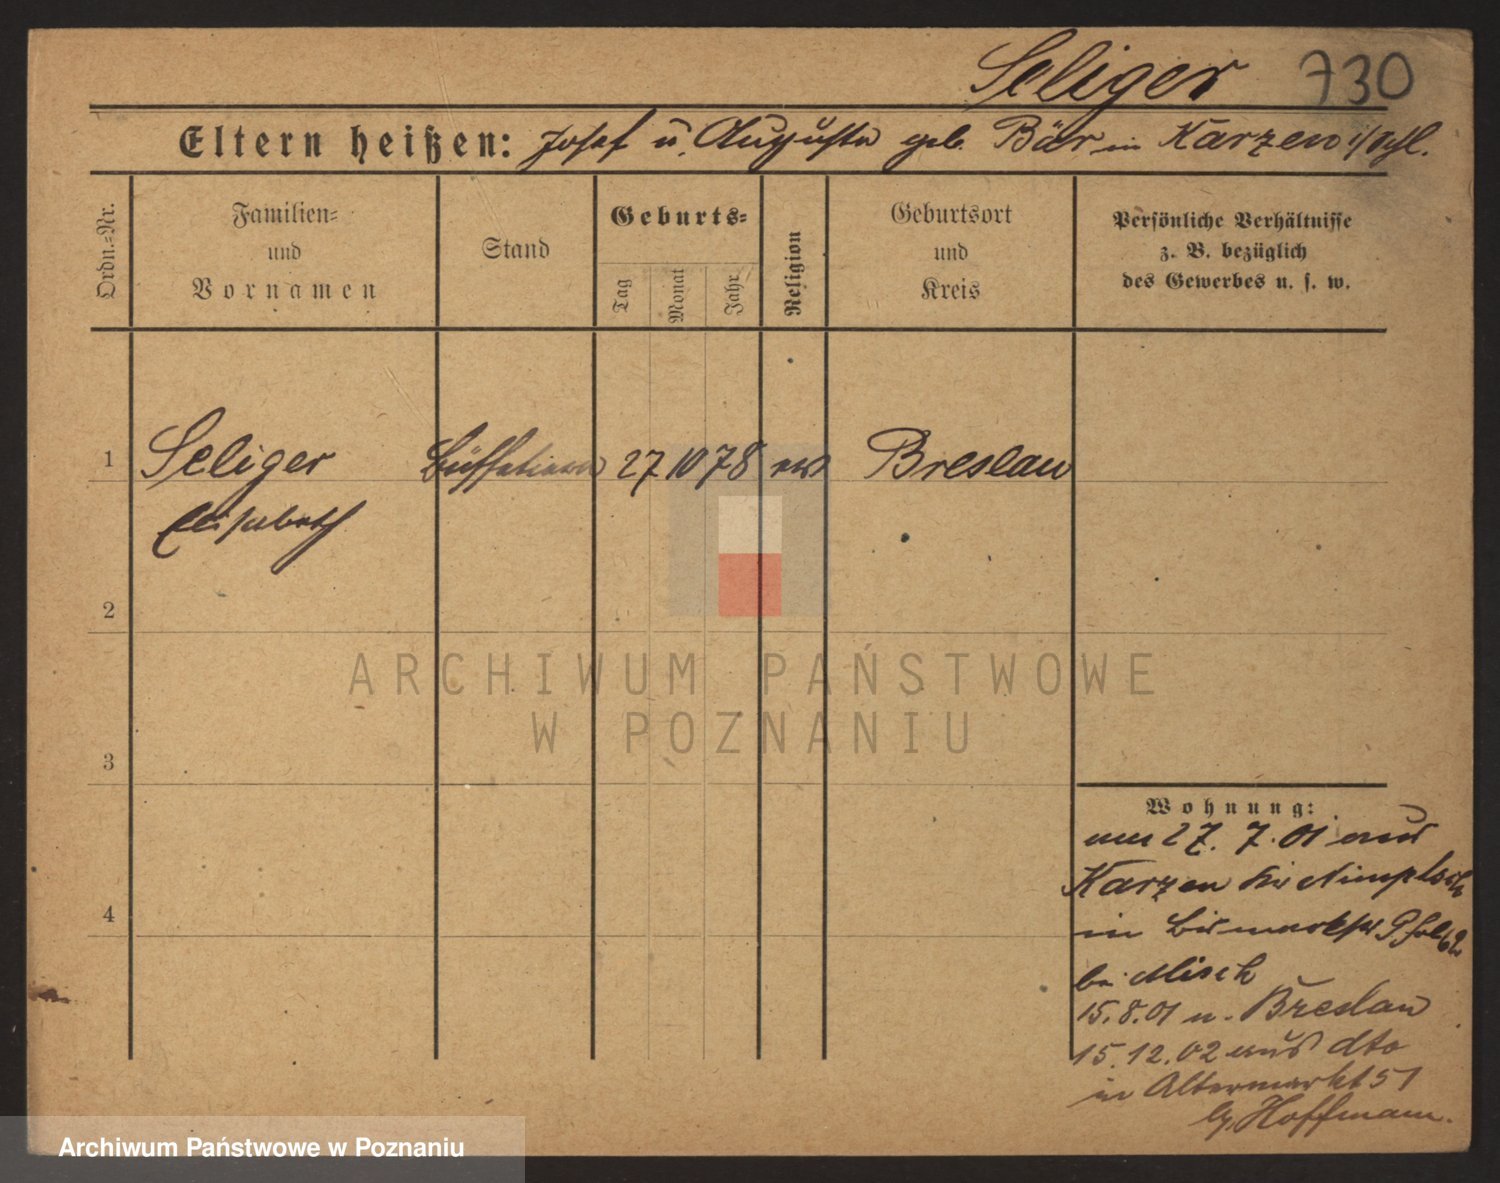 Seliger 730
Eltern heißen: Josef u. Auguste geb. Bär in Karzen i/Schl.
Ordn.=Nr.
Familien=
und
Vornamen
Stand
Geburts=
Tag
Monat
Jahr
Religion
Geburtsort
und
Kreis
Persönliche Verhältnisse
z. B. bezüglich
des Gewerbes u. s. w.
1 Seliger 27 10 78 ev Breslau
Elisabeth
2
ARCHIWUM PAŃSTWOWE
W POZNANIU
3
Wohnung:
am 27. 7. 01 aus
Karzen Kr Nimptsch
in Bismarckstr
bei Misch
15. 8. 01 n. Breslau
15. 12. 02 aus dto
in Altermarkt 51
4
bei Hoffmann.
Archiwum Państwowe w Poznaniu